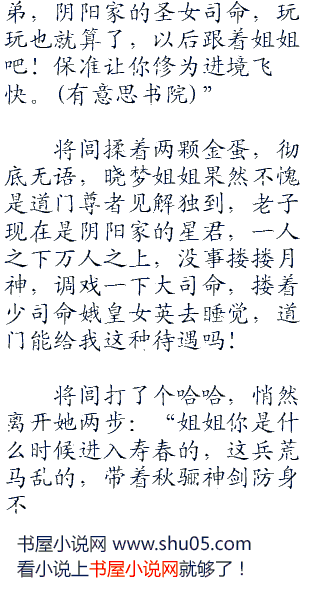 弟，阴阳家的圣女司命，玩
玩也就算了，以后跟着姐姐
吧！保准让你修为进境飞
快。(有意思书院)”
将闾揉着两颗金蛋，彻
底无语，晓梦姐姐果然不愧
是道门尊者见解独到，老子
现在是阴阳家的星君，一人
之下万人之上，没事搂搂月
神，调戏一下大司命，搂着
少司命娥皇女英去睡觉，道
门能给我这种待遇吗！
将闾打了个哈哈，悄然
离开她两步：“姐姐你是什
么时候进入寿春的，这兵荒
马乱的，带着秋骊神剑防身
不
书屋小说网 www.shu05.com
看小说上书屋小说网就够了！